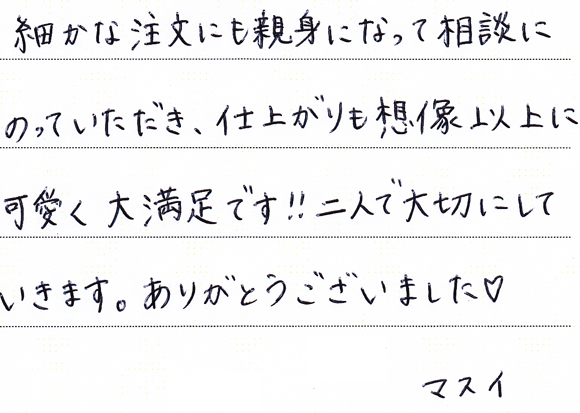 細かな注文にも親身になって相談に
のっていただき、仕上がりも想像以上に
可愛く大満足です!!二人で大切にして
いきます。ありがとうございました♡
マスイ